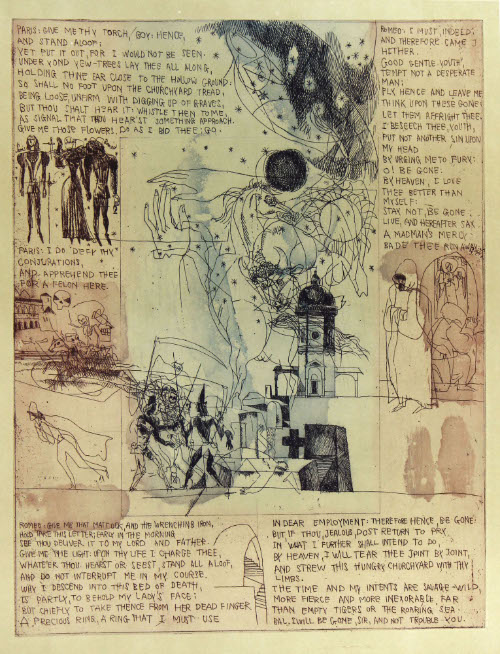 PARIS: GIVE ME THY TORCH, BOY: HENCE,
AND STAND ALOOF;
YET PUT IT OUT, FOR I WOULD NOT BE SEEN.
UNDER YOND YEW-TREES LAY THEE ALL ALONG,
HOLDING THINE EAR CLOSE TO THE HOLLOW GROUND:
SO SHALL NO FOOT UPON THE CHURCHYARD TREAD,
BEING LOOSE, UNFIRM WITH DIGGING UP OF GRAVES,
BUT THOU SHALT HEAR IT: WHISTLE THEN TO ME,
AS SIGNAL THAT THOU HEAR'ST SOMETHING APPROACH.
GIVE ME THOSE FLOWERS. DO AS I BID THEE; GO.
PARIS: I DO DEFY THY
CONJURATIONS,
AND APPREHEND THEE
FOR A FELON HERE.
ROMEO: I MUST, INDEED;
AND THEREFORE CAME I
HITHER.
GOOD GENTLE YOUTH,
TEMPT NOT A DESPERATE
MAN;
FLY HENCE AND LEAVE ME
THINK UPON THESE GONE;
LET THEM AFFRIGHT THEE.
I BESEECH THEE, YOUTH,
PUT NOT ANOTHER SIN UPON
MY HEAD
BY URGING ME TO FURY:
O! BE GONE:
BY HEAVEN, I LOVE
THEE BETTER THAN
MYSELF:
STAY NOT, BE GONE;
LIVE, AND HEREAFTER SAY
A MADMAN'S MERCY
BADE THEE RUN AWAY
ROMEO: GIVE ME THAT MATTOCK, AND THE WRENCHING IRON,
HOLD, TAKE THIS LETTER; EARLY IN THE MORNING
SEE THOU DELIVER IT TO MY LORD AND FATHER.
GIVE ME THE LIGHT: UPON THY LIFE I CHARGE THEE,
WHATE'ER THOU HEARST OR SEEST, STAND ALL ALOOF,
AND DO NOT INTERRUPT ME IN MY COURSE.
WHY I DESCEND INTO THIS BED OF DEATH,
IS PARTLY, TO BEHOLD MY LADY'S FACE:
BUT CHIEFLY TO TAKE THENCE FROM HER DEAD FINGER
A PRECIOUS RING, A RING THAT I MUST USE
IN DEAR EMPLOYMENT: THEREFORE HENCE, BE GONE:
BUT IF THOU, JEALOUS, DOST RETURN TO PRY
IN WHAT I FURTHER SHALL INTEND TO DO,
BY HEAVEN, I WILL TEAR THEE JOINT BY JOINT,
AND STREW THIS HUNGRY CHURCHYARD WITH THY
LIMBS.
THE TIME AND MY INTENTS ARE SAVAGE-WILD,
MORE FIERCE AND MORE INEXORABLE FAR
THAN EMPTY TIGERS OR THE ROARING SEA.
BAL. I WILL BE GONE, SIR, AND NOT TROUBLE YOU.